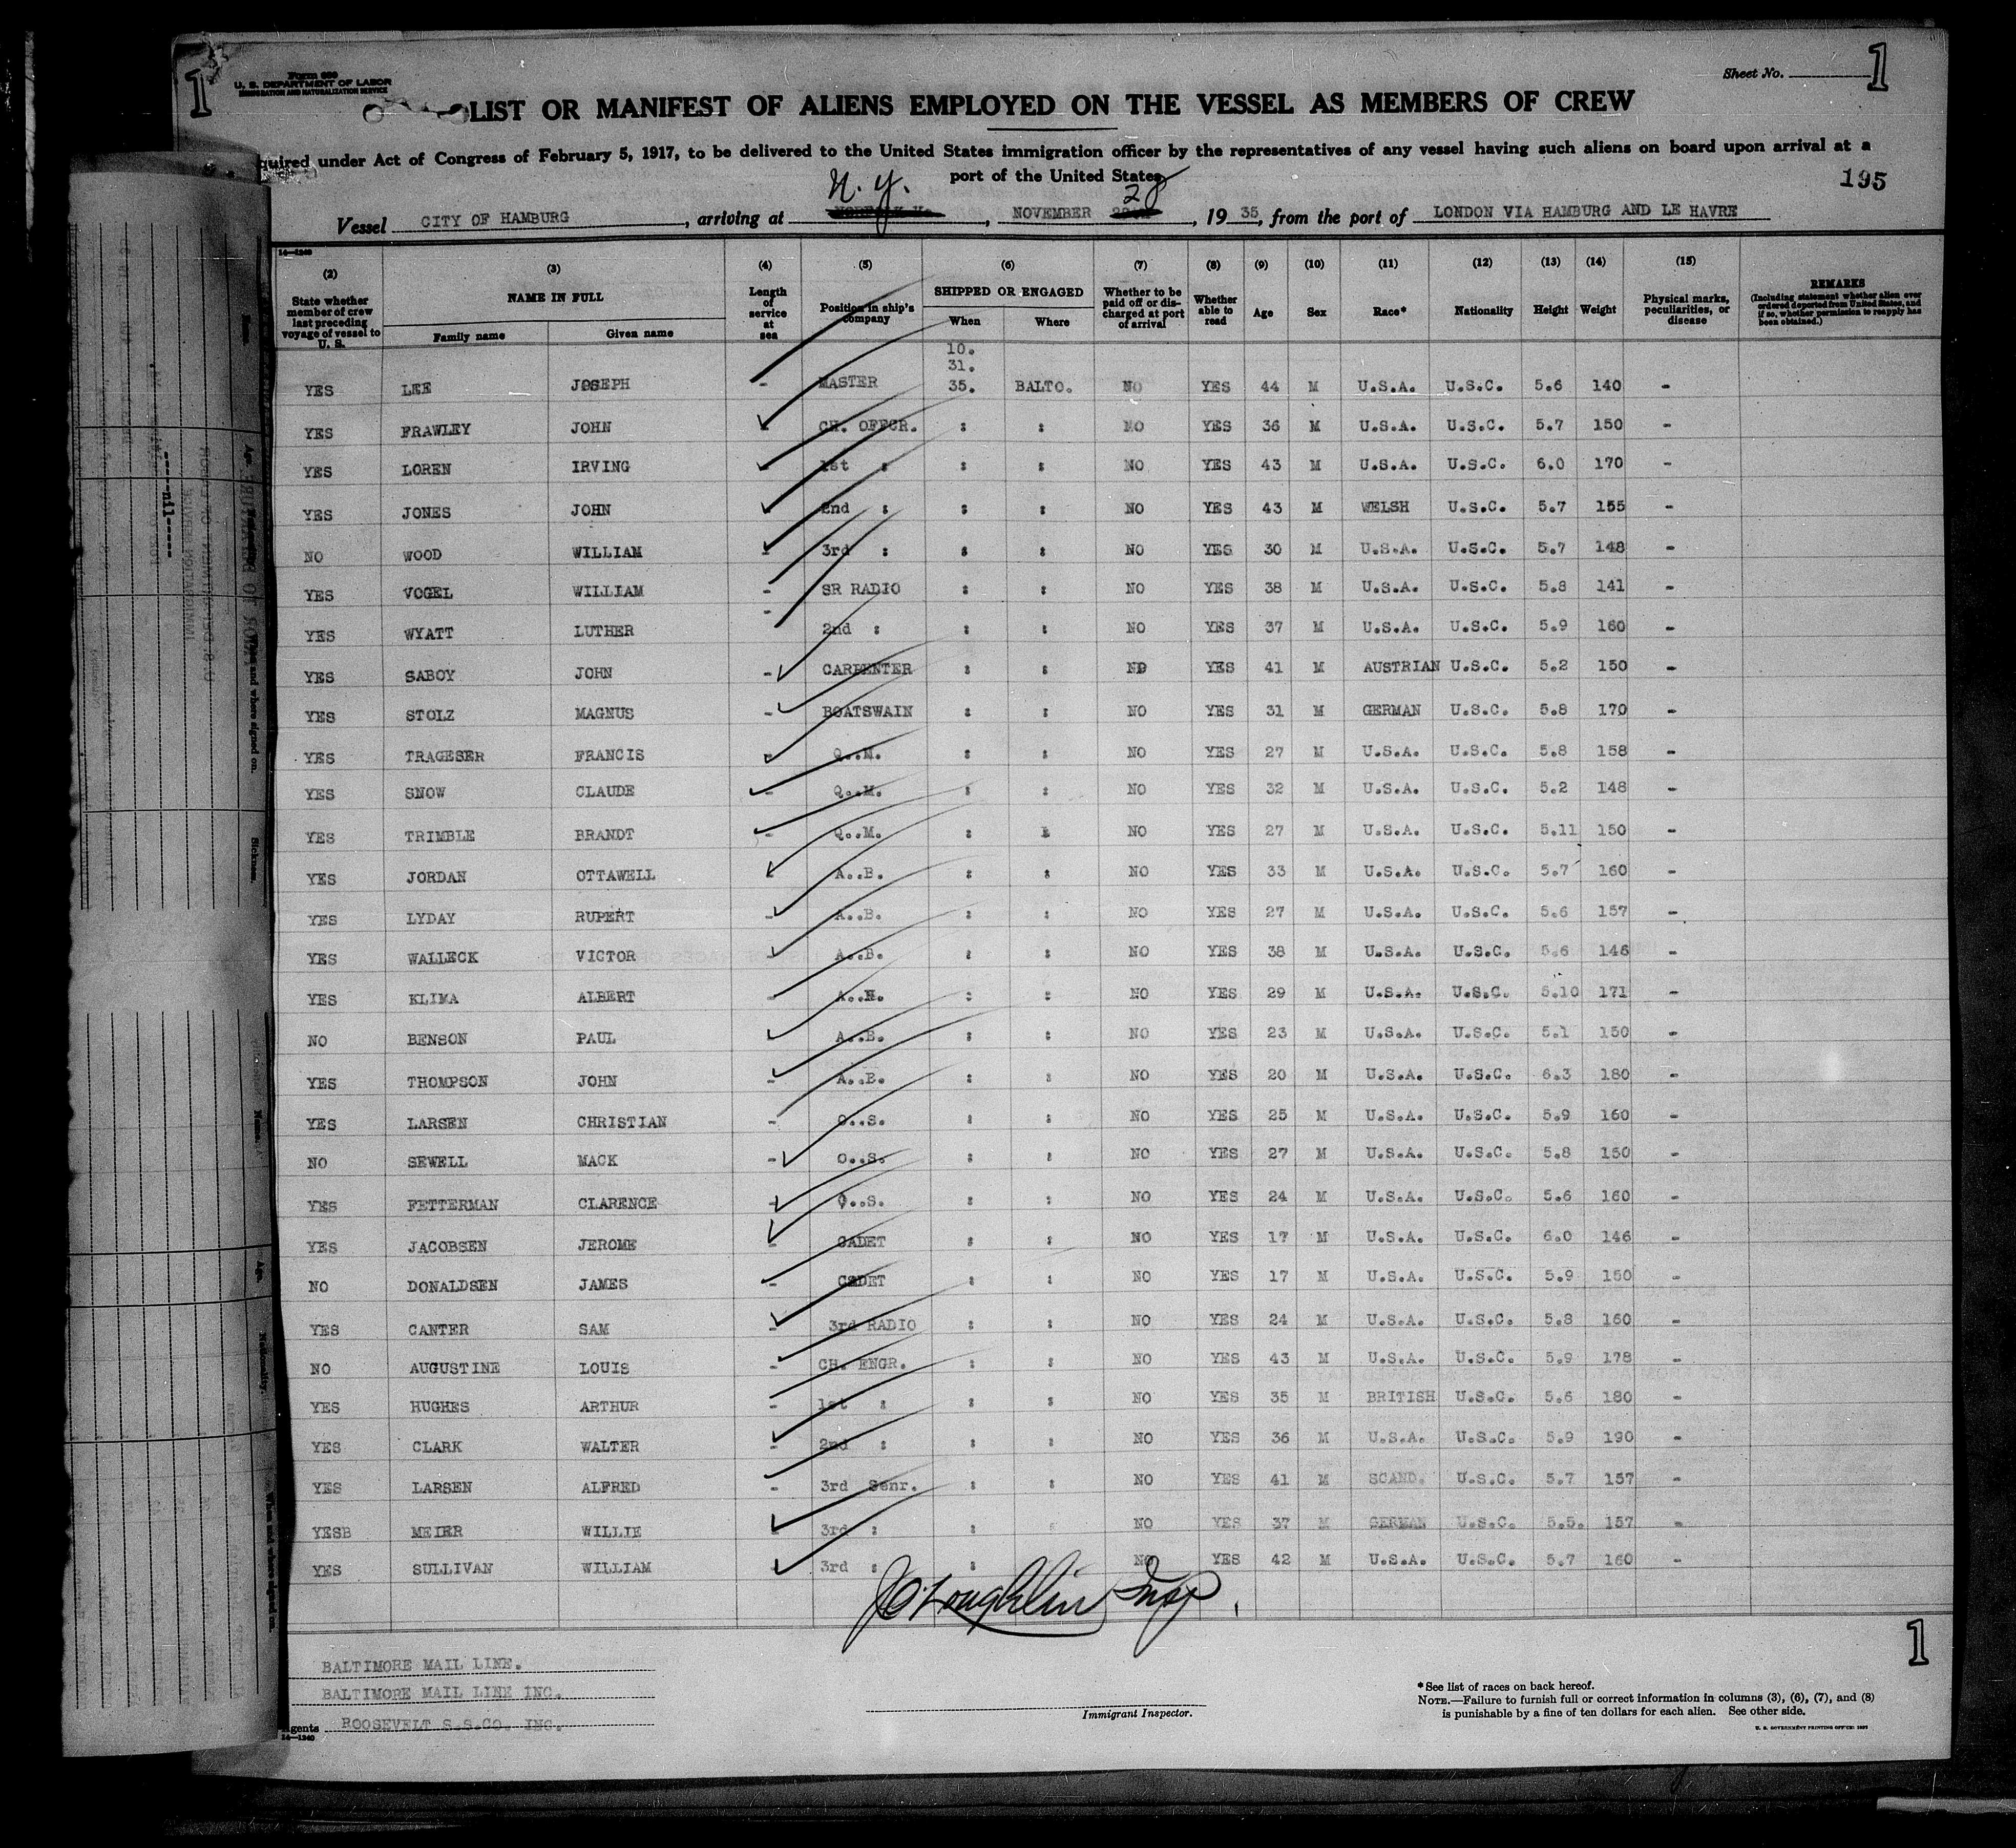 1
Form 689
U. S. DEPARTMENT OF LABOR
IMMIGRATION AND NATURALIZATION SERVICE
Sheet No. 1
LIST OR MANIFEST OF ALIENS EMPLOYED ON THE VESSEL AS MEMBERS OF CREW
quired under Act of Congress of February 5, 1917, to be delivered to the United States immigration officer by the representatives of any vessel having such aliens on board upon arrival at a
port of the United States
195
N. Y. 28
Vessel CITY OF HAMBURG, arriving at NORFOLK Va., NOVEMBER, 1935, from the port of LONDON VIA HAMBURG AND LE HAVRE
14—1240
(2) (3) (4) (5) (6) (7) (8) (9) (10) (11) (12) (13) (14) (15)
State whether member of crew last preceding voyage of vessel to U. S. NAME IN FULL Family name Given name Length of service at sea Position in ship's company SHIPPED OR ENGAGED When Where Whether to be paid off or discharged at port of arrival Whether able to read Age Sex Race* Nationality Height Weight Physical marks, peculiarities, or disease REMARKS (Including statement whether alien ever ordered deported from United States, and if so, whether permission to reapply has been obtained.)
10.
31.
YES LEE JOSEPH - MASTER 35. BALTO. NO YES 44 M U.S.A. U.S.C. 5.6 140 -
YES FRAWLEY JOHN - CH. OFFCR. : : NO YES 36 M U.S.A. U.S.C. 5.7 150 -
YES LOREN IRVING - 1st : : : NO YES 43 M U.S.A. U.S.C. 6.0 170 -
YES JONES JOHN - 2nd : : : NO YES 43 M WELSH U.S.C. 5.7 155 -
NO WOOD WILLIAM - 3rd : : : NO YES 30 M U.S.A. U.S.C. 5.7 148 -
YES VOGEL WILLIAM - SR RADIO : : NO YES 38 M U.S.A. U.S.C. 5.8 141 -
YES WYATT LUTHER - 2nd : : : NO YES 37 M U.S.A. U.S.C. 5.9 160 -
YES SABOY JOHN - CARPENTER : : NO YES 41 M AUSTRIAN U.S.C. 5.2 150 -
YES STOLZ MAGNUS - BOATSWAIN : : NO YES 31 M GERMAN U.S.C. 5.8 170 -
YES TRAGESER FRANCIS - Q..M. : : NO YES 27 M U.S.A. U.S.C. 5.8 158 -
YES SNOW CLAUDE - Q..M. : : NO YES 32 M U.S.A. U.S.C. 5.2 148 -
YES TRIMBLE BRANDT - Q..M. : : NO YES 27 M U.S.A. U.S.C. 5.11 150 -
YES JORDAN OTTAWELL - A..B. : : NO YES 33 M U.S.A. U.S.C. 5.7 160 -
YES LYDAY RUPERT - A..B. : : NO YES 27 M U.S.A. U.S.C. 5.6 157 -
YES WALLECK VICTOR - A..B. : : NO YES 38 M U.S.A. U.S.C. 5.6 146 -
YES KLIMA ALBERT - A..B. : : NO YES 29 M U.S.A. U.S.C. 5.10 171 -
NO BENSON PAUL - A..B. : : NO YES 23 M U.S.A. U.S.C. 5.1 150 -
YES THOMPSON JOHN - A..B. : : NO YES 20 M U.S.A. U.S.C. 6.3 180 -
YES LARSEN CHRISTIAN - O..S. : : NO YES 25 M U.S.A. U.S.C. 5.9 160 -
NO SEWELL MACK - O..S. : : NO YES 27 M U.S.A. U.S.C. 5.8 150 -
YES FETTERMAN CLARENCE - O..S. : : NO YES 24 M U.S.A. U.S.C. 5.6 160 -
YES JACOBSEN JEROME - CADET : : NO YES 17 M U.S.A. U.S.C. 6.0 146 -
NO DONALDSEN JAMES - CADET : : NO YES 17 M U.S.A. U.S.C. 5.9 150 -
YES CANTER SAM - 3rd RADIO : : NO YES 24 M U.S.A. U.S.C. 5.8 160 -
NO AUGUSTINE LOUIS - CH. ENGR. : : NO YES 43 M U.S.A. U.S.C. 5.9 178 -
YES HUGHES ARTHUR - 1st : : : NO YES 35 M BRITISH U.S.C. 5.6 180 -
YES CLARK WALTER - 2nd : : : NO YES 36 M U.S.A. U.S.C. 5.9 190 -
YES LARSEN ALFRED - 3rd Senr. : : NO YES 41 M SCAND. U.S.C. 5.7 157 -
YESB MEIER WILLIE - 3rd : : : NO YES 37 M GERMAN U.S.C. 5.5. 157 -
YES SULLIVAN WILLIAM - 3rd : : NO YES 42 M U.S.A. U.S.C. 5.7 160 -
J O'Loughlin Insp.
1
BALTIMORE MAIL LINE.
BALTIMORE MAIL LINE INC.
Agents ROOSEVELT S.S.CO. INC.
14—1240
Immigrant Inspector.
*See list of races on back hereof.
NOTE.—Failure to furnish full or correct information in columns (3), (6), (7), and (8)
is punishable by a fine of ten dollars for each alien. See other side.
U. S. GOVERNMENT PRINTING OFFICE